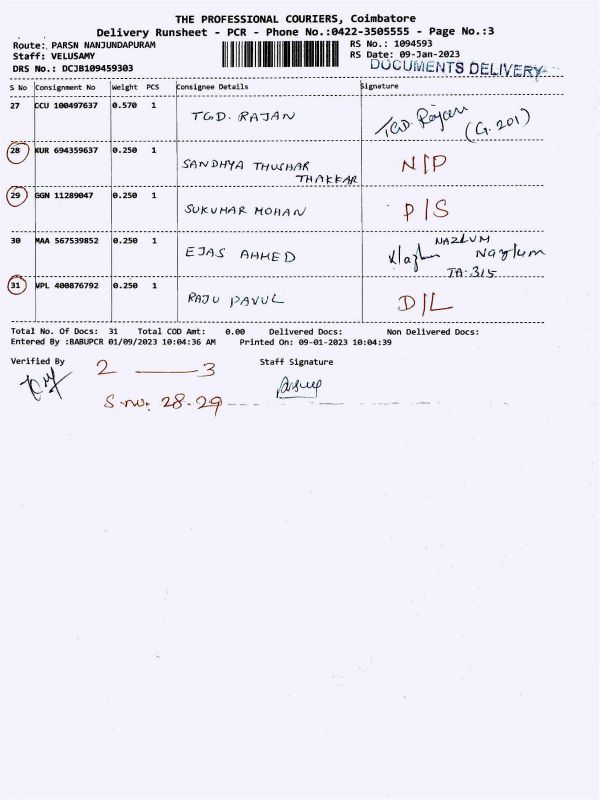 THE PROFESSIONAL COURIERS, Coimbatore
Delivery Runsheet - PCR - Phone No.:0422-3505555 - Page No.:3
Route: PARSN NANJUNDAPURAM RS No.: 1094593
Staff: VELUSAMY RS Date: 09-Jan-2023
DRS No.: DCJB109459303 DOCUMENTS DELIVERY
S No Consignment No Weight PCS Consignee Details Signature
27 CCU 100497637 0.570 1 TGD. RAJAN TGD. Rajan (G.201)
28 KUR 694359637 0.250 1 SANDHYA THUSHAR THAKKAR N/P
29 GGN 11289047 0.250 1 SUKUMAR MOHAN P/S
30 MAA 567539852 0.250 1 EJAS AHMED NAZLUM
TA: 315
31 VPL 400876792 0.250 1 RAJU PAVUL D/L
Total No. Of Docs: 31 Total COD Amt: 0.00 Delivered Docs: Non Delivered Docs:
Entered By :BABUPCR 01/09/2023 10:04:36 AM Printed On: 09-01-2023 10:04:39
Verified By Staff Signature
2 — 3
S.no: 28-29